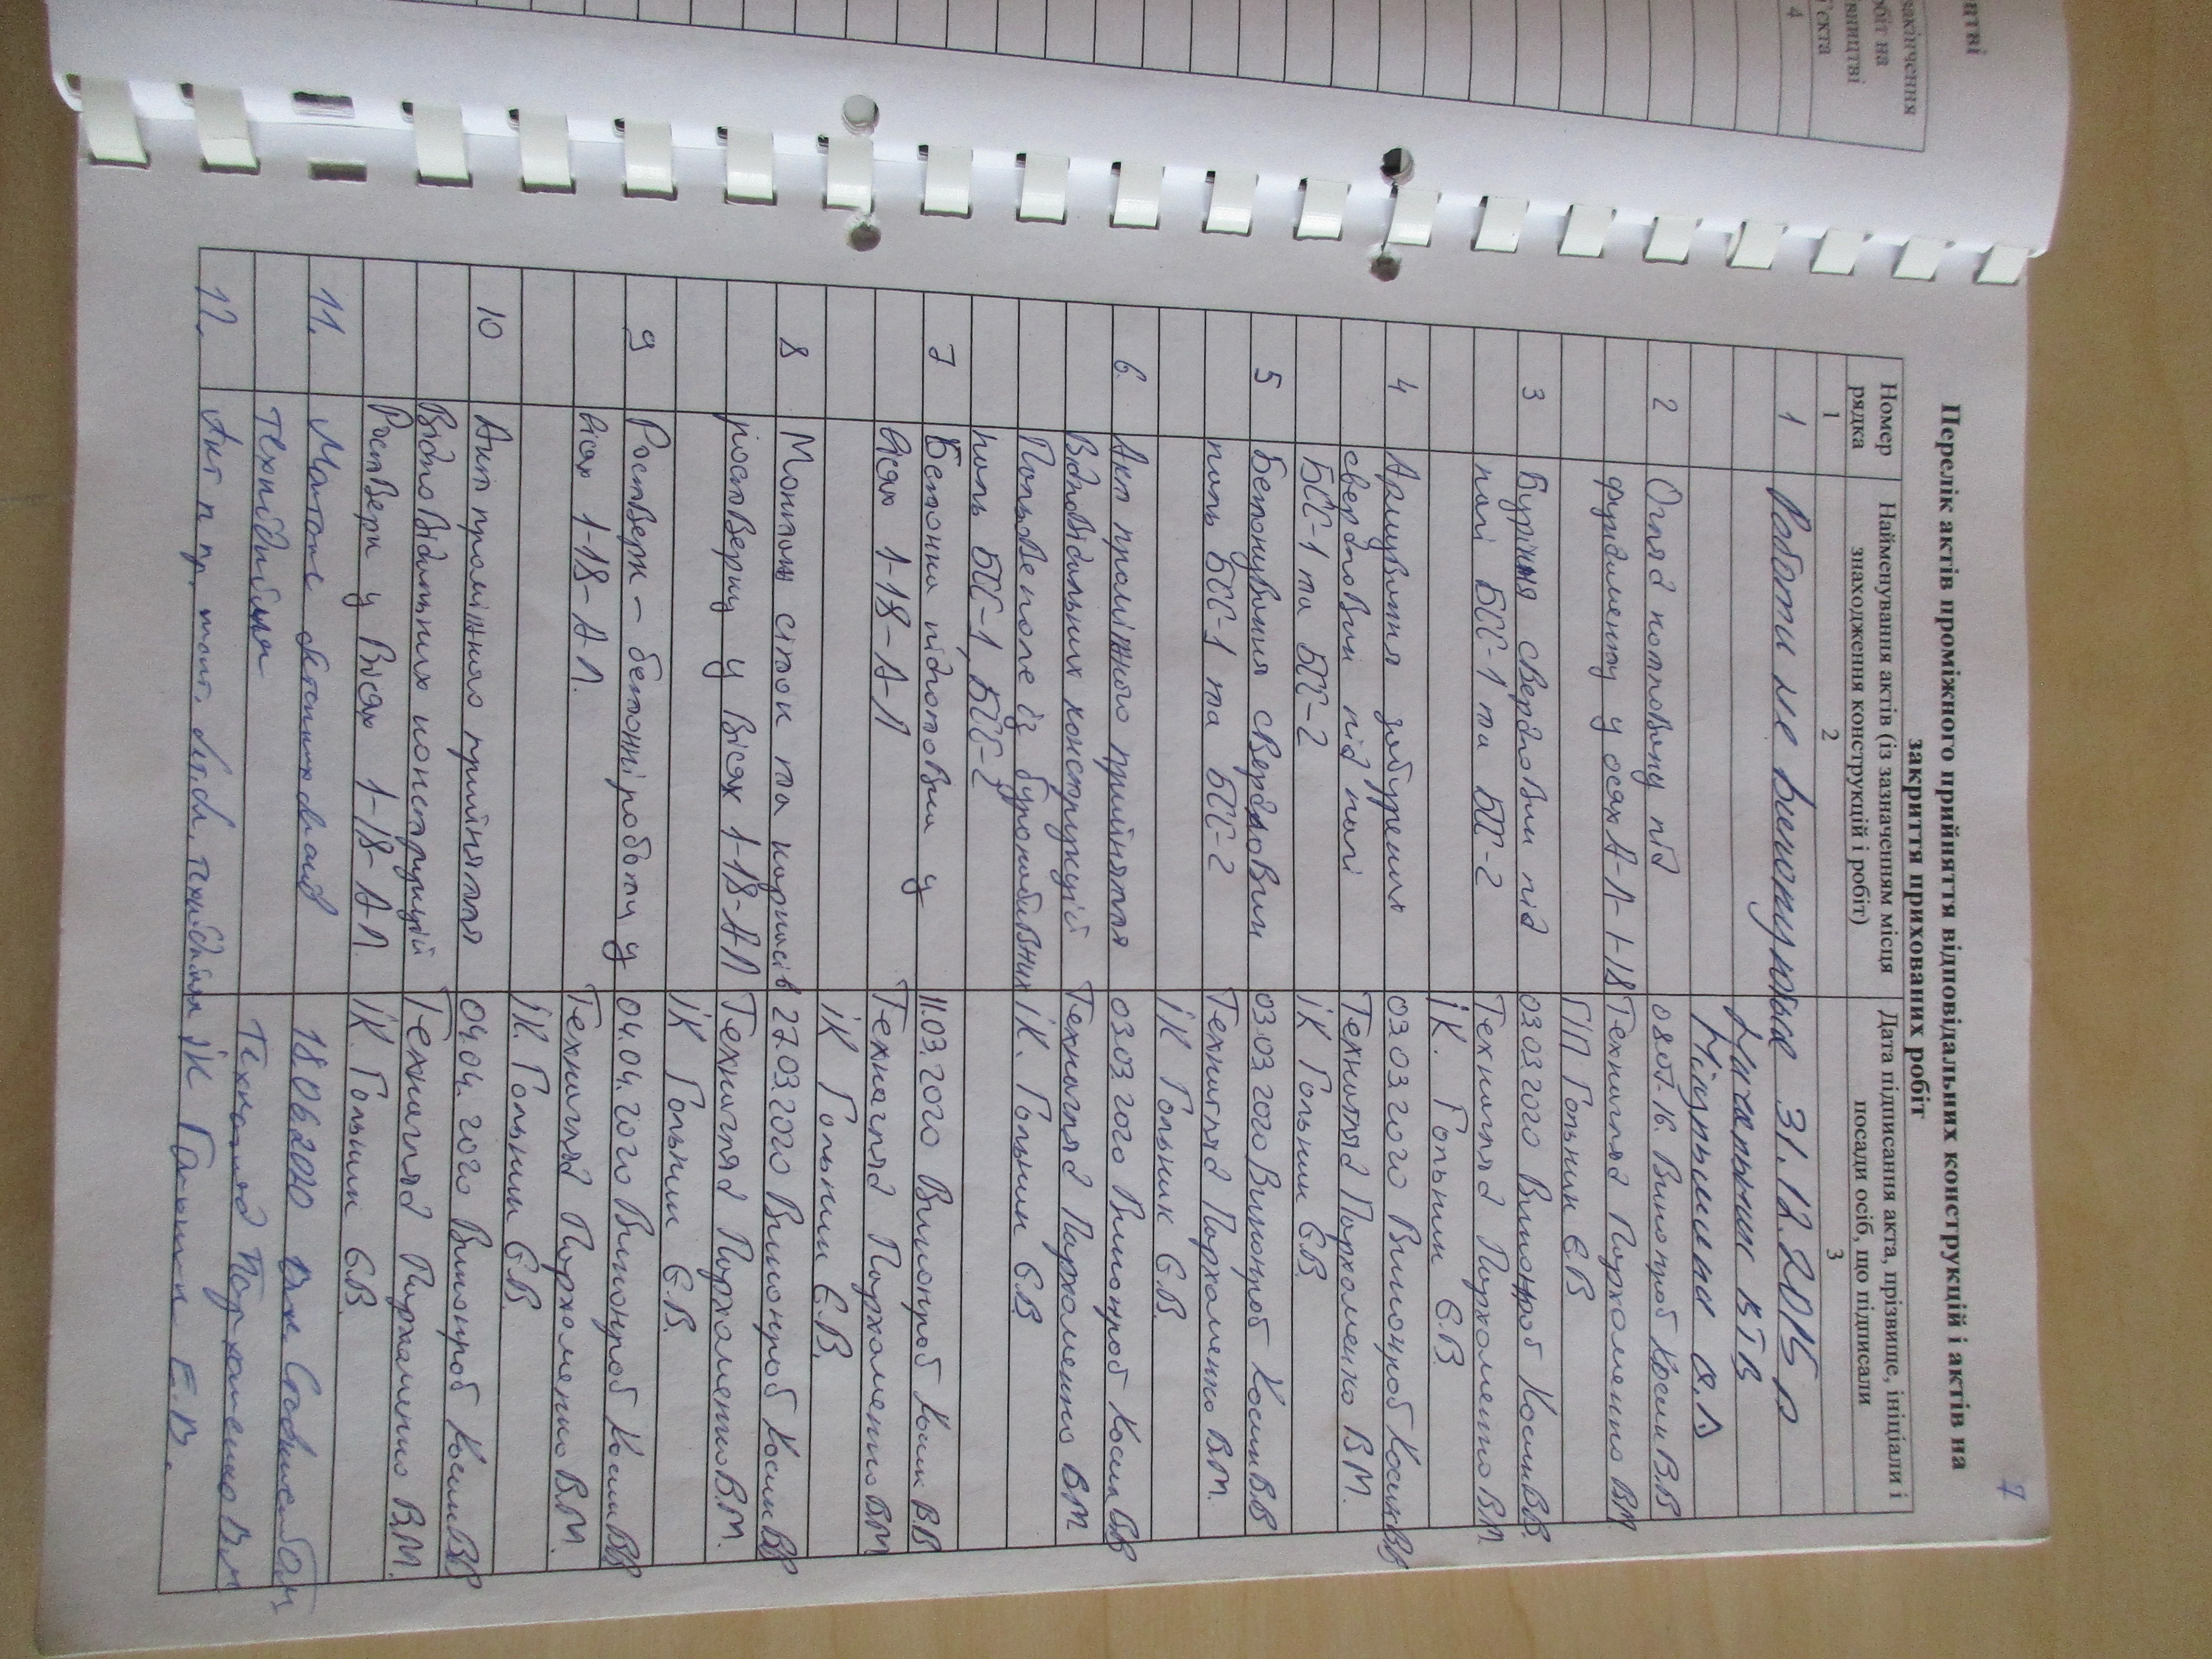 нтві
закінчення
обіт на
івництві
'єкта
4
7
Перелік актів проміжного прийняття відповідальних конструкцій і актів на
закриття прихованих робіт
Номер рядка
Найменування актів (із зазначенням місця знаходження конструкцій і робіт)
Дата підписання акта, прізвище, ініціали і посади осіб, що підписали
1 2 3
1 Роботи не виконувались 31.12.2015 р
Начальник ВТВ
О.Л
2 Огляд котловану під 08.07.16. Виконроб Косик В.В
фундаменту у осях А-Л-1-18 Технагляд Пархоменко ВМ
ГІП Гольник Є.В
3 Буріння свердловин під 03.03.2020 Виконроб Косик ВВ.
палі БСС-1 та БСС-2 Технагляд Пархоменко ВМ.
ІК. Гольник Є.В.
4 Армування 03.03.2020 Виконроб Косик ВВ
свердловин під палі Технагляд Пархоменко ВМ.
БСС-1 та БСС-2 ІК Гольник Є.В.
5 Бетонування свердловин 03.03.2020 Виконроб Косик ВВ
паль БСС-1 та БСС-2 Технагляд Пархоменко ВМ.
ІК Гольник Є.В.
6. Акт проміжного прийняття 03.03.2020 Виконроб Косик ВВ
Відповідальних конструкцій Технагляд Пархоменко ВМ
Пальове поле із буронабивних ІК. Гольник Є.В
паль БСС-1, БСС-2
7 Бетонна підготовка у 11.03.2020 Виконроб Косик В.В
вісях 1-18-А-Л Технагляд Пархоменко ВМ
ІК Гольник Є.В.
8 Монтаж сіток та каркасів 27.03.2020 Виконроб Косик ВВ
ростверку у Вісях 1-18-А-Л Технагляд Пархоменко В.М.
ІК Гольник Є.В.
9 Ростверк - бетонні роботи у 04.04.2020 Виконроб Косик ВВ
вісях 1-18-А-Л. Технагляд Пархоменко В.М.
ІК. Гольник Є.В.
10 Акт проміжного прийняття 04.04.2020 Виконроб Косик ВВ
Відповідальних конструкцій Технагляд Пархоменко В.М.
Ростверк у Вісях 1-18-А-Л. ІК. Гольник Є.В.
11. Монтаж бетонних блоків 18.06.2020
техпідпілля Технагляд Пархоменко В.М
12. Акт п пр. техпідпілля ІК Гольник Е.В.